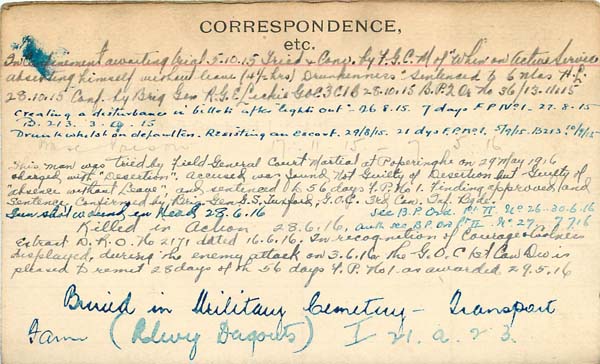 CORRESPONDENCE,
etc.
In confinement awaiting trial 5.10.15 Tried & Conv. by F.G.C.M of "When on Active Service
absenting himself without leave (4½ hrs) Drunkenness" Sentenced to 6 mos H.L.
28.10.15 Conf. by Brig Gen R.G.E. Leckie G.O.C. 3 C I B 28.10.15 B.P.2. O. No 36/13.11.15
Creating a disturbance in billets after "lights out" 26.8.15. 7 days F.P. No 1. 27.8.15
B. 213. 3. 9. 15
Drunk whilst on defaulters. Resisting an escort. 29/8/15. 21 dys F.P. No 1. 5/9/15. B213
Prison 17 11 15 7 5 16
This man was tried by Field General Court Martial at Poperinghe on 29 May 1916
charged with "Desertion". Accused was found Not Guilty of Desertion but Guilty of
"absence without Leave", and sentenced to 56 days F.P. No 1. Finding approved and
Sentence Confirmed by Brig. Gen. G.S. Tuxford, G.O.C. 3rd Can. Inf. Bgde.
Gun shot wound in Head 28.6.16 See B.P. Ord. Pt II No 26-30.6.16
Killed in Action 28.6.16, auth see B.P. Ord Pt II No 27 7.7.16
Extract D.R.O. No 2171 dated 16.6.16. In recognition of Courage & Coolness
displayed, during the enemy attack on 3.6.16 the G.O.C 1st Can Div is
pleased to remit 28 days of the 56 days F.P. No 1. as awarded 29.5.16
Buried in Military Cemetery - Transport
Farm (Rlwy Dugouts) I 21. a. 2 3.